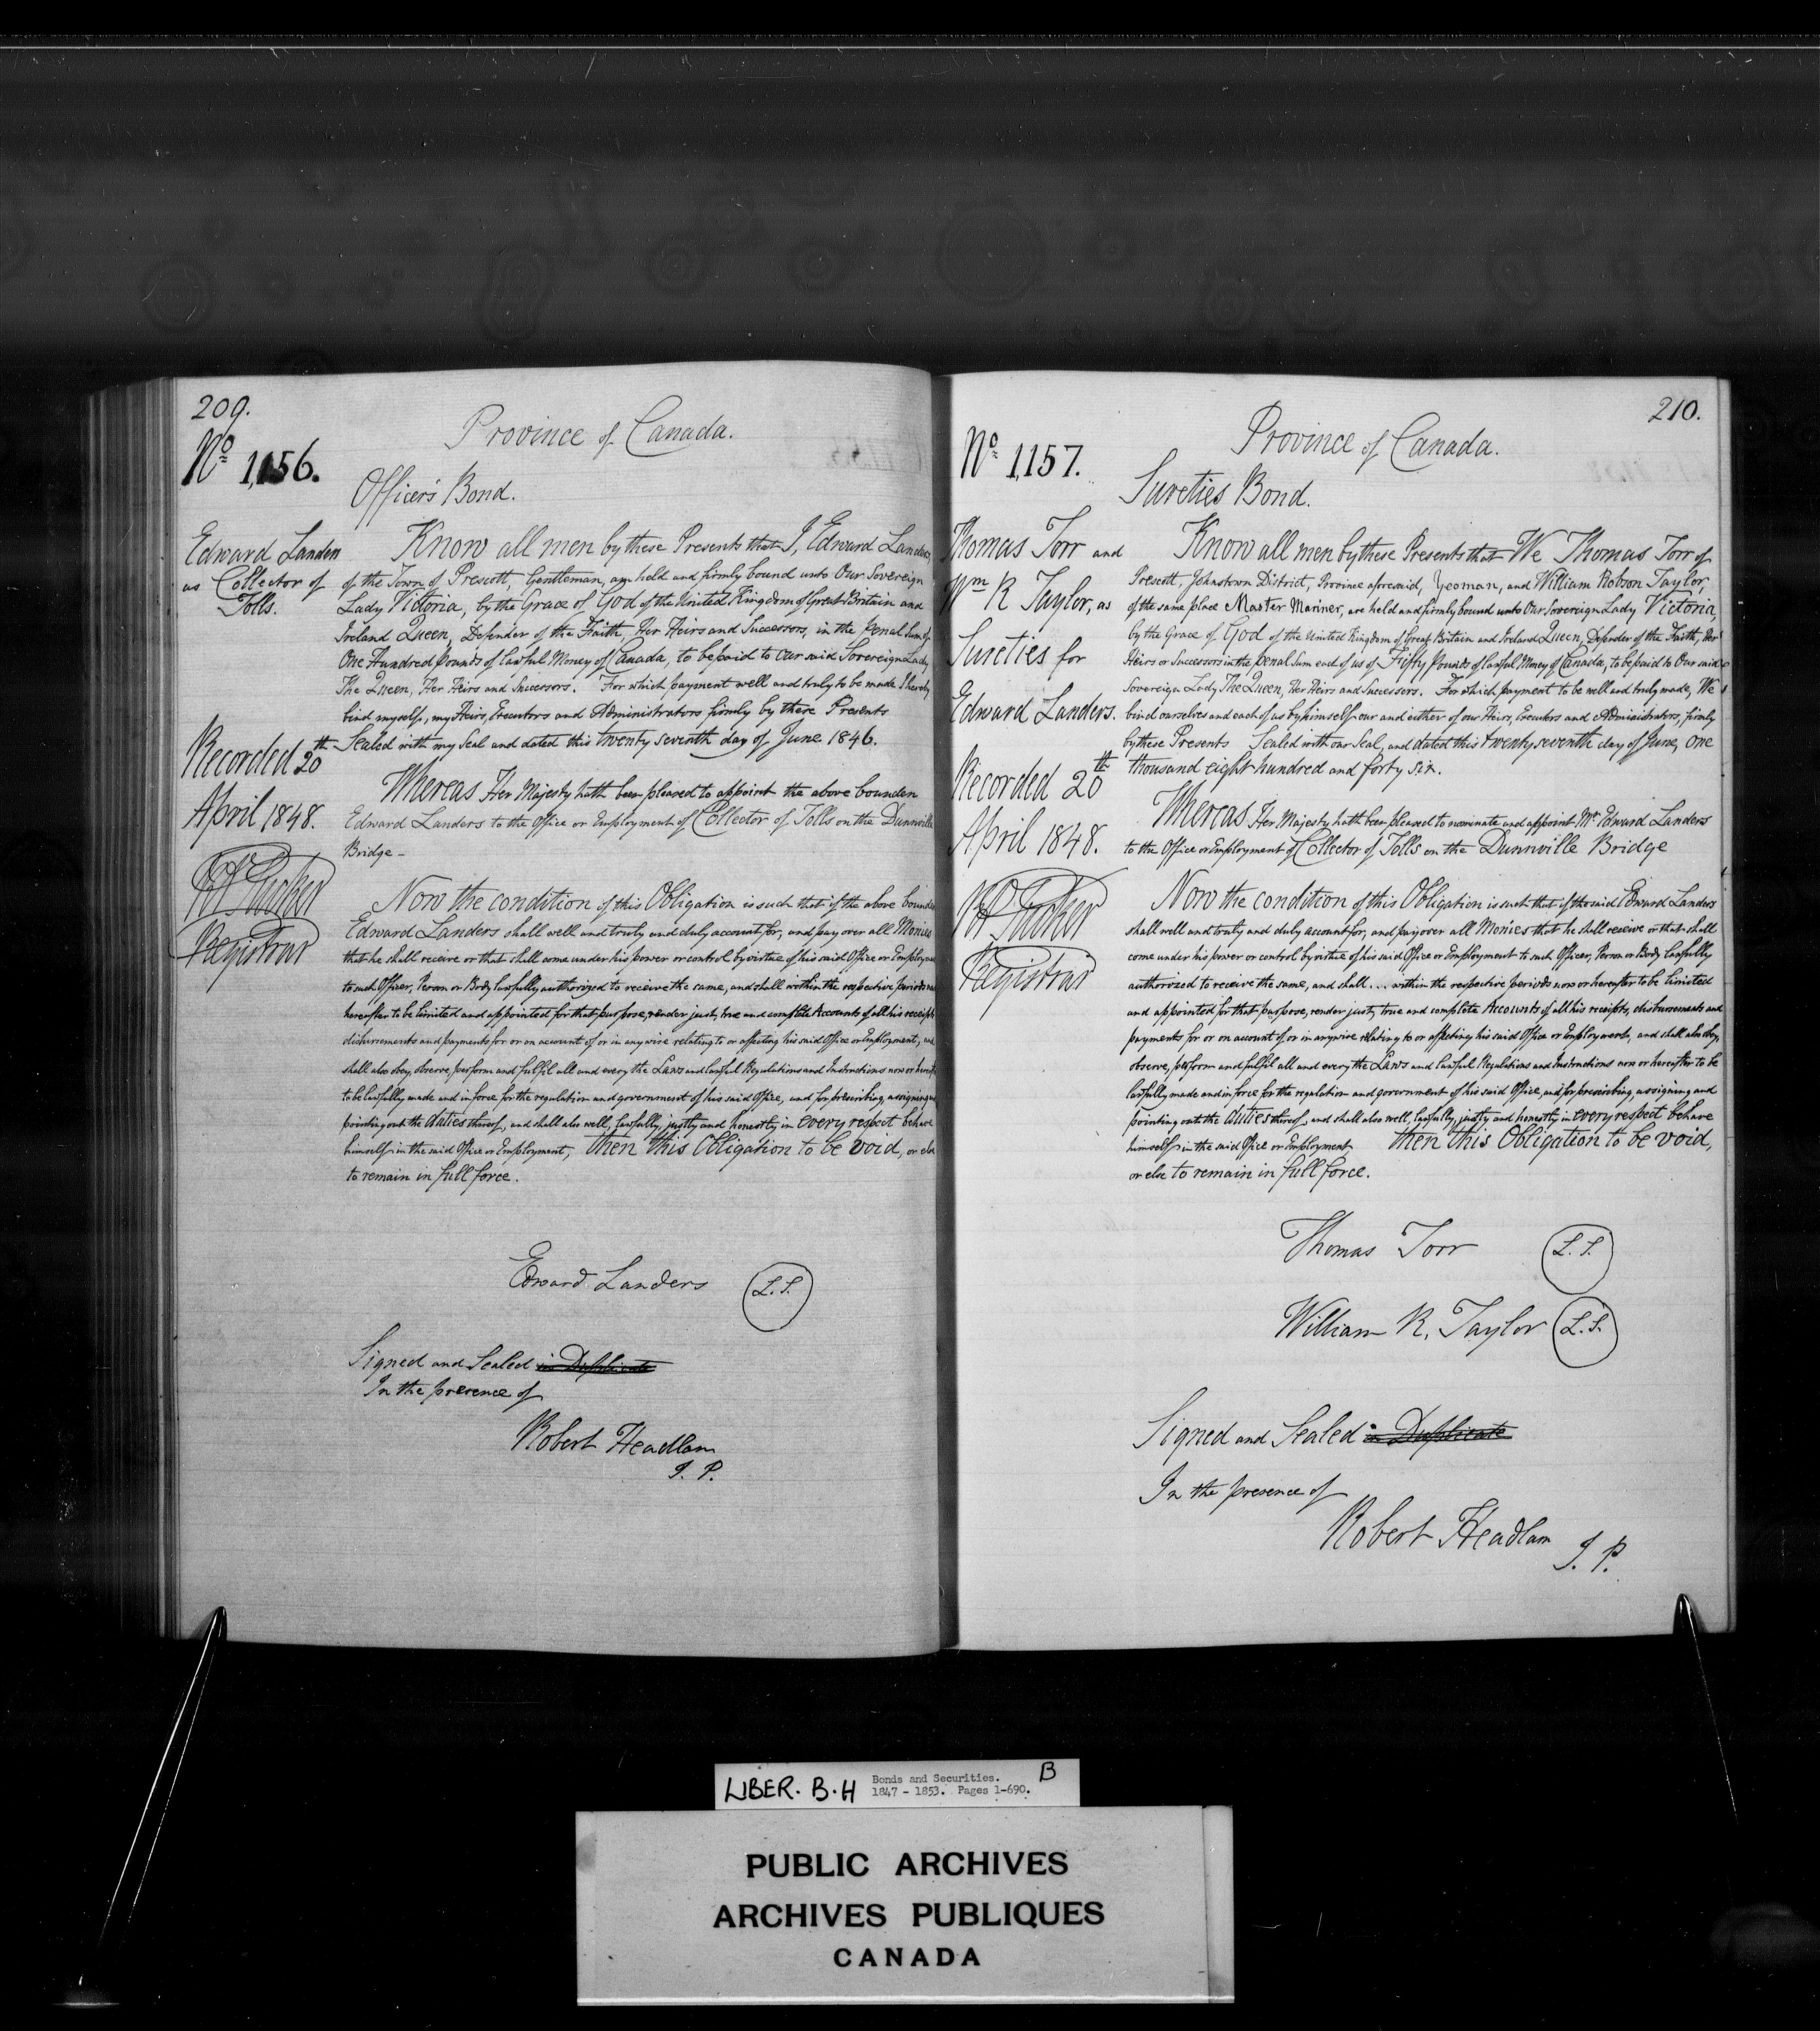 209.
Province of Canada.
No 1,156.
Officer's Bond.
Edward Landen
as Collector of
Tolls.
Know all men by these Presents that I, Edward Landers,
of the Town of Prescott, Gentleman, am held and firmly bound unto Our Sovereign
Lady Victoria, by the Grace of God of the United Kingdom of Great Britain and
Ireland Queen, Defender of the Faith, Her Heirs and Successors, in the penal Sum of
One Hundred pounds of lawful Money of Canada, to be paid to our said Sovereign Lady
The Queen, Her Heirs and Successors. For which payment well and truly to be made I hereby
bind myself, my Heirs, Executors and Administrators firmly by these Presents
Sealed with my Seal and dated this twenty seventh day of June 1846.
Recorded 20th
April 1848.
Tucker
Registrar
Whereas Her Majesty hath been pleased to appoint the above bounden
Edward Landers to the Office or Employment of Collector of Tolls on the Dunnville
Bridge –
Now the condition of this Obligation is such that if the above bounden
Edward Landers shall well and truly and duly account for, and pay over all Monies
that he shall receive or that shall come under his power or control by virtue of his said Office or Employment
to such Officer, Person or Body lawfully authorized to receive the same, and shall within the respective periods now
hereafter to be limited and appointed for that purpose, render just, true and complete Accounts of all his receipts
disbursements and payments for or on account of or in any wise relating to or affecting his said Office or Employment, and
shall also obey, observe, perform and fulfil all and every the Laws and lawful Regulations and Instructions now or hereafter
to be lawfully made and in force for the regulation and government of his said Office, and for prescribing, assigning and
pointing out the duties thereof, and shall also well, lawfully, justly and honestly, in every respect behave
himself in the said Office or Employment, then this Obligation to be void, or else
to remain in full force.
Edward Landers L.S.
Signed and Sealed in Duplicate
In the presence of
Robert Headlam
J. P.
210.
Province of Canada.
No 1,157.
Sureties Bond.
Thomas Torr and
Wm R Taylor, as
Sureties for
Edward Landers.
Know all men by these Presents that We Thomas Torr of
Prescott, Johnstown District, Province aforesaid, Yeoman, and William Robson Taylor,
of the same place Master Mariner, are held and firmly bound unto Our Sovereign Lady Victoria,
by the Grace of God of the United Kingdom of Great Britain and Ireland Queen, Defender of the Faith, Her
Heirs or Successors in the penal Sum each of us of Fifty pounds of lawful Money of Canada, to be paid to Our said
Sovereign Lady The Queen, Her Heirs and Successors. For which payment to be well and truly made, We
bind ourselves and each of us by himself our and either of our Heirs, Executors and Administrators, firmly
by these Presents Sealed with our Seal, and dated this twenty seventh day of June, One
thousand eight hundred and forty six.
Recorded 20th
April 1848.
Tucker
Registrar
Whereas Her Majesty hath been pleased to nominate and appoint Mr Edward Landers
to the Office or Employment of Collector of Tolls on the Dunnville Bridge
Now the condition of this Obligation is such that if the said Edward Landers
shall well and truly and duly account for, and pay over all Monies that he shall receive or that shall
come under his power or control by virtue of his said Office or Employment to such Officer, Person or Body lawfully
authorized to receive the same, and shall ... within the respective periods now or hereafter to be limited
and appointed for that purpose, render just, true and complete Accounts of all his receipts, disbursements and
payments for or on account of, or in anywise relating to or affecting his said Office or Employment, and shall also obey,
observe, perform and fulfil all and every the Laws and lawful Regulations and Instructions now or hereafter to be
lawfully made and in force for the regulation and government of his said Office, and for prescribing, assigning and
pointing out the duties thereof, and shall also well, lawfully, justly and honestly in every respect behave
himself in the said Office or Employment, then this Obligation to be void,
or else to remain in full force.
Thomas Torr L.S.
William R. Taylor L.S.
Signed and Sealed in Duplicate
In the presence of
Robert Headlam J. P.
LIBER. B.H Bonds and Securities. B
1847 - 1853. Pages 1-690.
PUBLIC ARCHIVES
ARCHIVES PUBLIQUES
CANADA